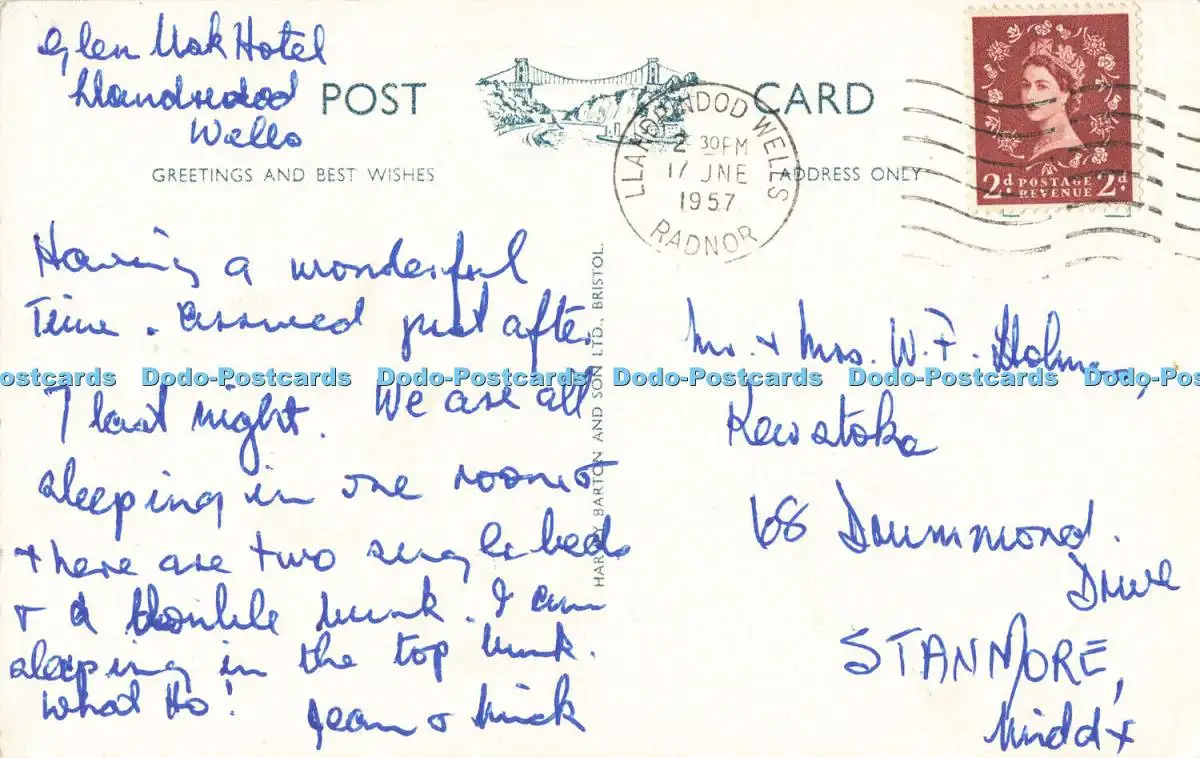 Glen Usk Hotel
Llandredod
Wells
POST CARD
GREETINGS AND BEST WISHES
ADDRESS ONLY
LLANDRINDOD WELLS
2 30PM
17 JNE
1957
RADNOR
2d POSTAGE 2d
REVENUE
Having a wonderful
Time. Arrived just after
7 last night. We are all
sleeping in one room &
there are two single beds
& a double bunk. I am
sleeping in the top bunk.
What Ho!
Jean & Mick
HARVEY BARTON AND SON LTD., BRISTOL.
Mr. & Mrs. W. F. Holmes,
Kewstoke
68 Drummond.
Drive
STANMORE,
Middx
ostcards Dodo-Postcards Dodo-Postcards Dodo-Postcards Dodo-Postcards Dodo-Pos